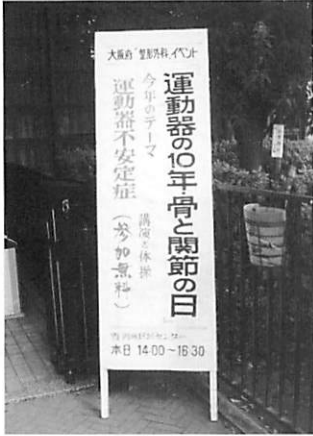 大阪府「整形外科」イベント
「運動器の10年・骨と関節の日」
今年のテーマ
運動器不安定症
講演と体操
(参加無料)
センター
本日 14:00〜16:30